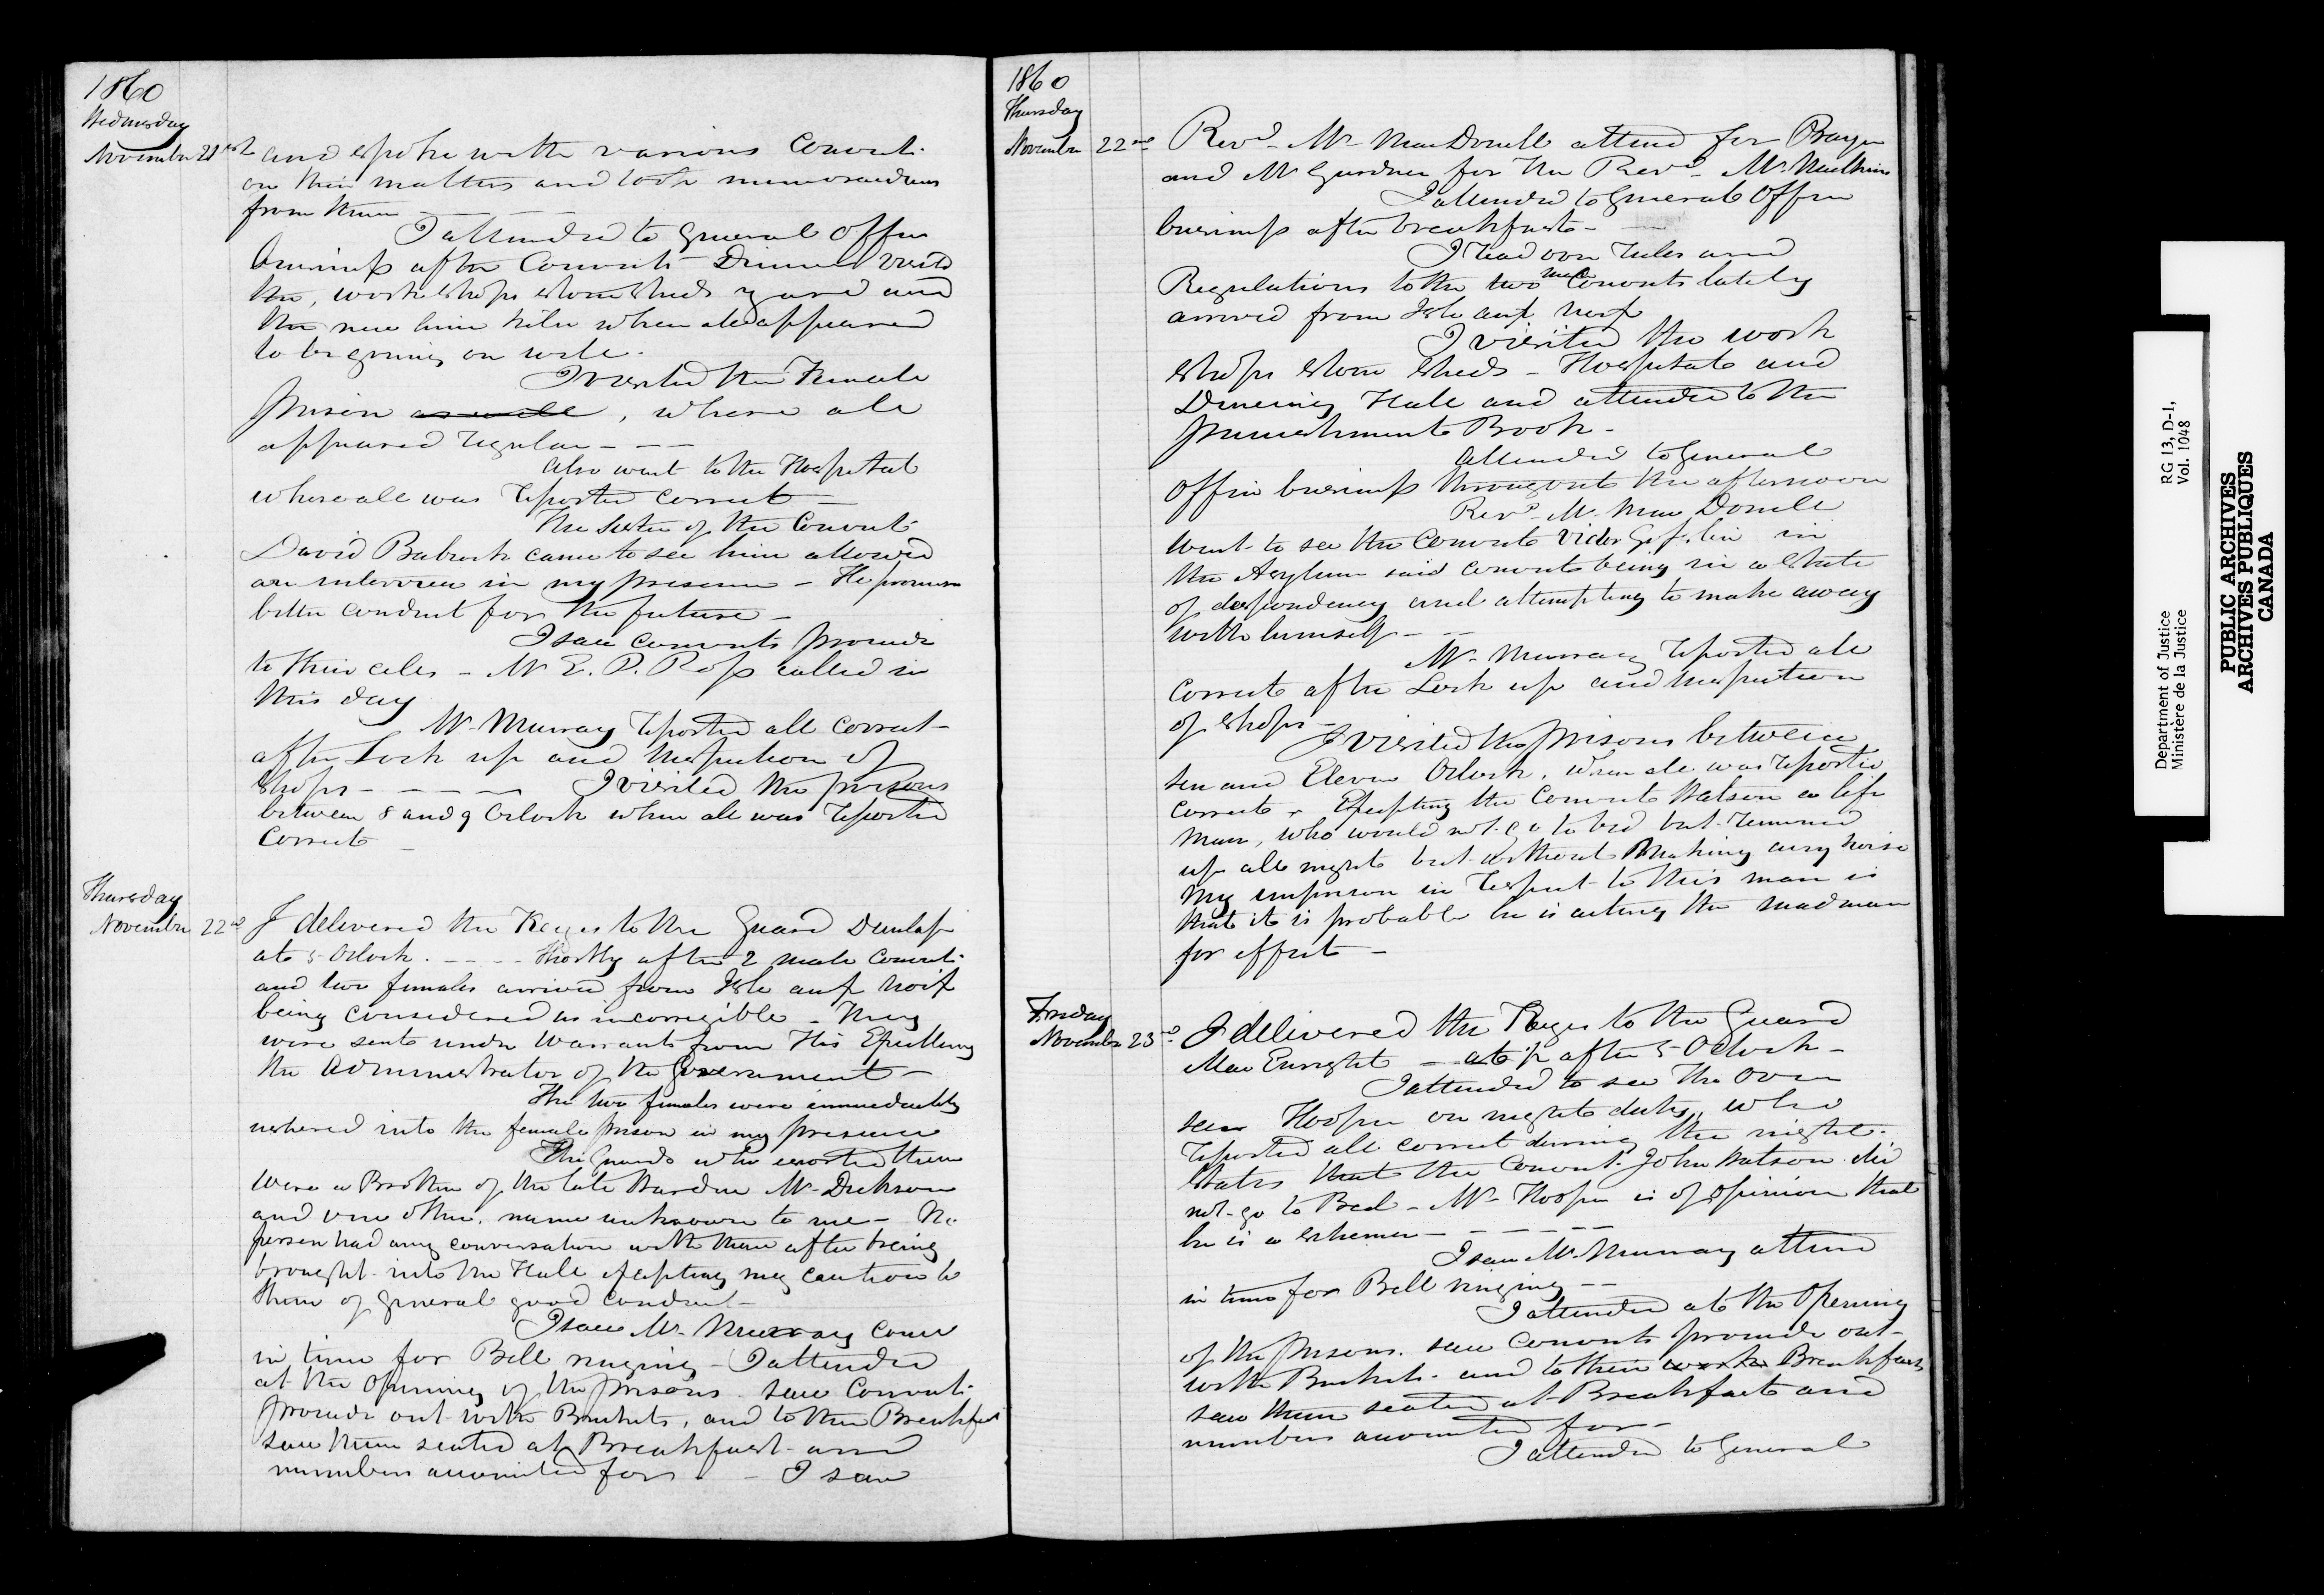 1860
Wednesday
November 21st and spoke with various Convicts
on their matters and took memorandums
from them
I attended to General Office
business after Convicts Dinner visited
the, work shops stone sheds yard and
the new lime kiln when all appeared
to be going on well.
I visited the Female
Prison as well, where all
appeared regular - - -
Also went to the Hospital
where all was reported correct
The Sister of the Convict
David Babcock came to see him allowed
an interview in my presence - He promises
better conduct for the future -
I saw convicts proceed
to their cells - Mr E. P. Ross called in
this day
Mr Murray reported all correct -
after Lock up and Inspection of
Shops - - - - I visited the prisons
between 8 and 9 Oclock when all was reported
Correct -
Thursday
November 22nd I delivered the Keys to the Guard Dunlap
at 5 Oclock. - - - - Shortly after 2 male Convicts
and two females arrived from Isle aux Noix
being considered as incorrigible - They
were sent under Warrants from His Excellency
the Administrator of the Government -
The two females were immediately
ushered into the female prison in my presence
The Guards who escorted them
were a Brother of the late Warden Mr Dickson
and one other, name unknown to me - No
person had any conversation with them after being
brought into the Hall excepting my caution to
them of general good conduct -
I saw Mr Murray come
in time for Bell ringing - I attended
at the Opening of the prisons saw Convicts
proceed out with Buckets, and to their Breakfast
saw them seated at Breakfast and
numbers accounted for - - I saw
1860
Thursday
November 22nd Revd Mr MacDonell attend for Prayer
and Mr Gardner for the Revd Mr Mulkins
I attended to General Office
business after breakfast -
I read over rules and
Regulations to the two male Convicts lately
arrived from Isle aux Noix
I visited the work
Shops stone sheds - Hospital and
Dineing Hall and attended to the
Punishment Book -
Attended to General
Office business througout the afternoon
Revd Mr MacDonell
went to see the Convict Victor in
the Asylum said convict being in a state
of despondency and attempting to make away
with himself -
Mr Murray reported all
correct after Lock up and Inspection
of Shops -
I visited the prisons between
ten and Eleven Oclock, when all was reported
correct - Excepting the Convict Watson a life
man, who would not go to bed but remained
up all night but without Making any noise
My impression in respect to this man is
that it is probable he is acting the madman
for effect -
Friday
November 23rd I delivered the Keys to the Guard
MacEnright - at 1/2 after 5 Oclock -
I attended to see the Over
seer Hooper on night duty, who
reported all correct during the night.
States that the Convict John Watson did
not go to Bed - Mr Hooper is of opinion that
he is a schemer - - - - -
I saw Mr Murray attend
in time for Bell ringing - -
I attended at the Opening
of the prisons. saw Convicts proceed out
with Buckets. and to their works Breakfast
saw them seated at Breakfast and
numbers accounted for -
I attended to General
Department of Justice
Ministère de la Justice
RG 13, D-1,
Vol. 1048
PUBLIC ARCHIVES
ARCHIVES PUBLIQUES
CANADA